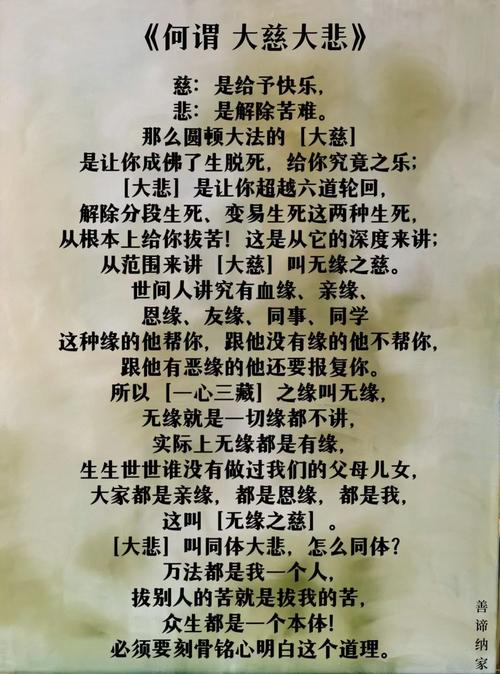 《何谓 大慈大悲》
慈：是给予快乐，
悲：是解除苦难。
那么圆顿大法的［大慈］
是让你成佛了生脱死，给你究竟之乐；
［大悲］是让你超越六道轮回，
解除分段生死、变易生死这两种生死，
从根本上给你拔苦！这是从它的深度来讲；
从范围来讲［大慈］叫无缘之慈。
世间人讲究有血缘、亲缘、
恩缘、友缘、同事、同学
这种缘的他帮你，跟他没有缘的他不帮你，
跟他有恶缘的他还要报复你。
所以［一心三藏］之缘叫无缘，
无缘就是一切缘都不讲，
实际上无缘都是有缘，
生生世世谁没有做过我们的父母儿女，
大家都是亲缘，都是恩缘，都是我，
这叫［无缘之慈］。
［大悲］叫同体大悲，怎么同体？
万法都是我一个人，
拔别人的苦就是拔我的苦，
众生都是一个本体！
必须要刻骨铭心明白这个道理。
善谛纳家